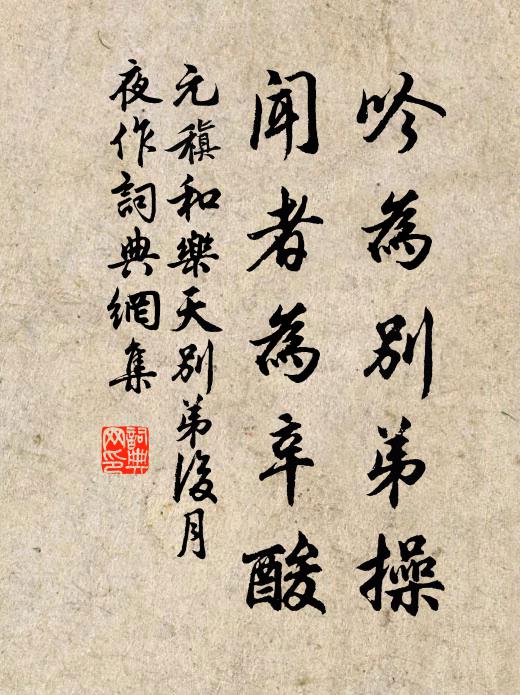 吟為別弟操
聞者為辛酸
元稹和樂天別弟後月
夜作詞典網集
詞典
网印